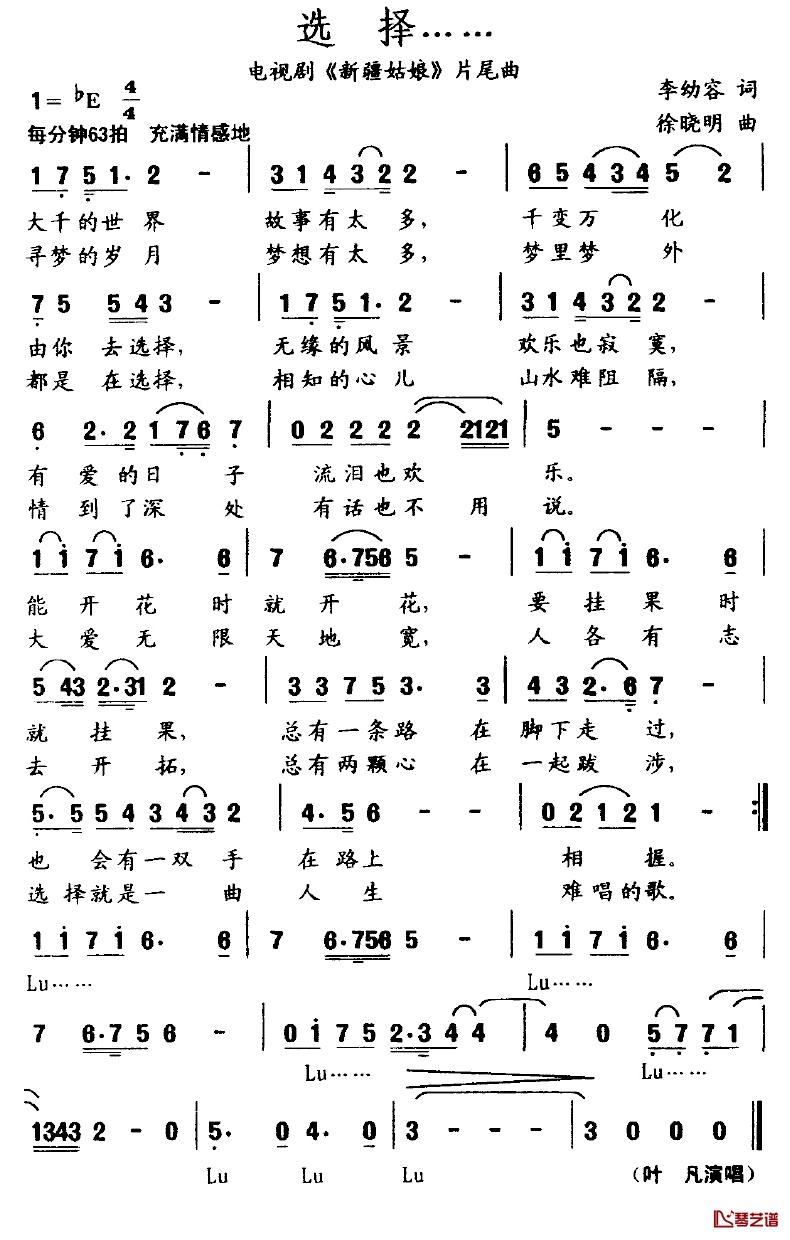 选 择……
电视剧《新疆姑娘》片尾曲
1= ♭E 4/4
李幼容 词
每分钟63拍 充满情感地
徐晓明 曲
1 7 5 1· 2 - | 3 1 4 3 2 2 - | 6 5 4 3 4 5 2 |
大千的世界 故事有太多, 千变万 化
寻梦的岁月 梦想有太多, 梦里梦 外
7 5 5 4 3 - | 1 7 5 1· 2 - | 3 1 4 3 2 2 - |
由你 去选择, 无缘的风景 欢乐也寂寞,
都是 在选择, 相知的心儿 山水难阻隔,
6 2· 2 1 7 6 7 | 0 2 2 2 2 2121 | 5 - - - |
有 爱的日 子 流泪也欢 乐。
情到了深 处 有话也不 用 说。
1 1 7 1 6· 6 | 7 6·756 5 - | 1 1 7 1 6· 6 |
能开花 时就开花, 要挂果时
大爱无 限天地宽, 人各有志
5 43 2·31 2 - | 3 3 7 5 3· 3 | 4 3 2· 6 7 - |
就挂 果, 总有一条路 在脚下走 过,
去开 拓, 总有两颗心 在一起跋 涉,
5· 5 5 4 3 4 3 2 | 4· 5 6 - - | 0 2 1 2 1 - :|
也 会有一双 手 在路上 相 握。
选择就是一 曲 人 生 难唱的歌。
1 1 7 1 6· 6 | 7 6·756 5 - | 1 1 7 1 6· 6 |
Lu…… Lu……
7 6·7 5 6 - | 0 1 7 5 2·3 4 4 | 4 0 5 7 7 1 |
Lu…… Lu……
1343 2 - 0 | 5· 0 4· 0 | 3 - - - | 3 0 0 0 ‖
Lu Lu Lu (叶 凡演唱)
琴艺谱